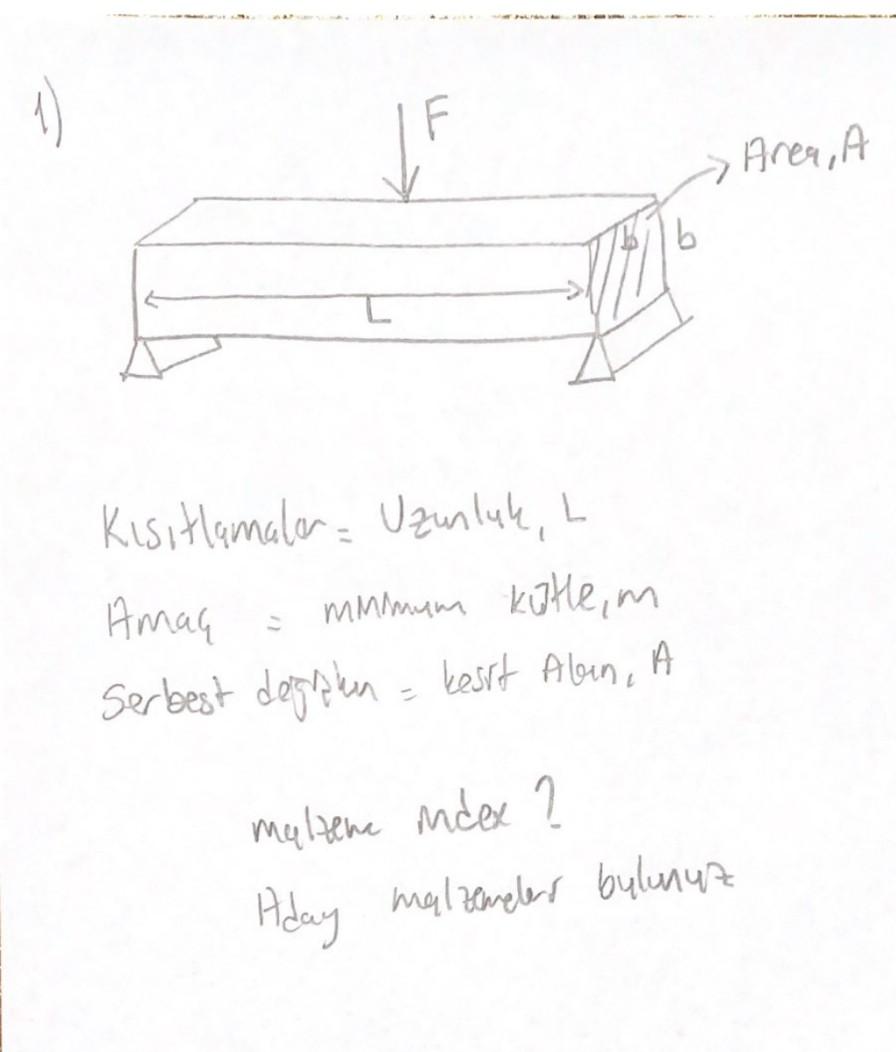 1)
F
Area, A
b b
L
Kısıtlamalar = Uzunluk, L
Amaç = minimum kütle, m
Serbest değişken = kesit Alanı, A
malzeme index ?
Aday malzemeleri bulunuz